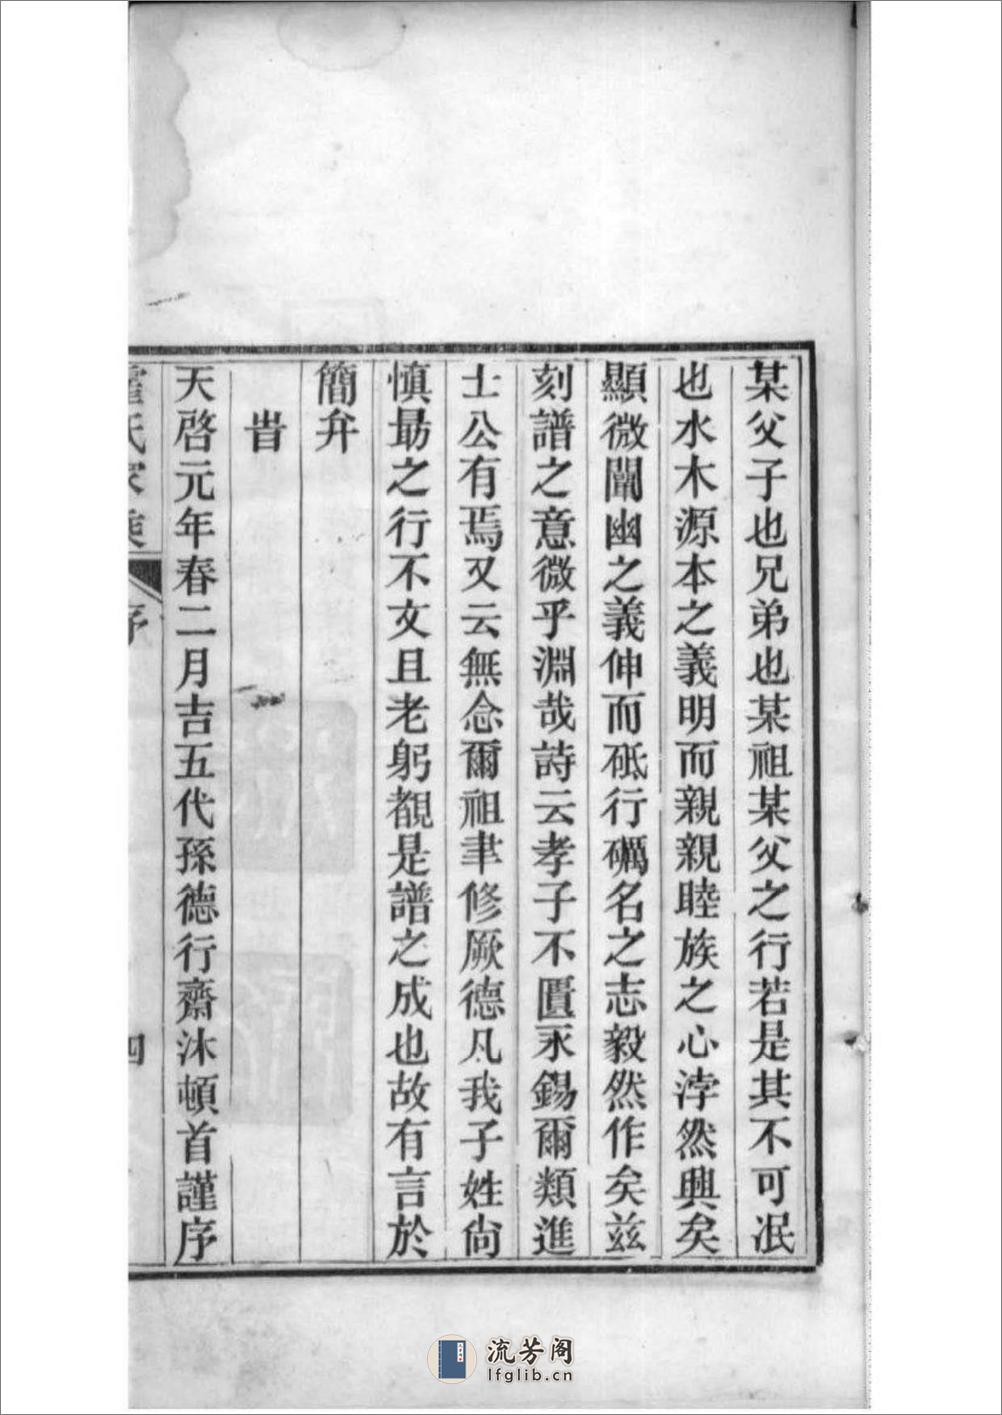 某父子也兄弟也某祖某父之行若是其不可泯
也水木源本之義明而親親睦族之心浡然興矣
顯微闡幽之義伸而砥行礪名之志毅然作矣玆
刻譜之意微乎淵哉詩云孝子不匱永錫爾類進
士公有焉又云無念爾祖聿修厥德凡我子姓尙
愼勗之行不文且老躬覩是譜之成也故有言於
簡弁
旹
天啓元年春二月吉五代孫德行齋沐頓首謹序
氏家乘
序
四
流芳阁
lfglib.cn